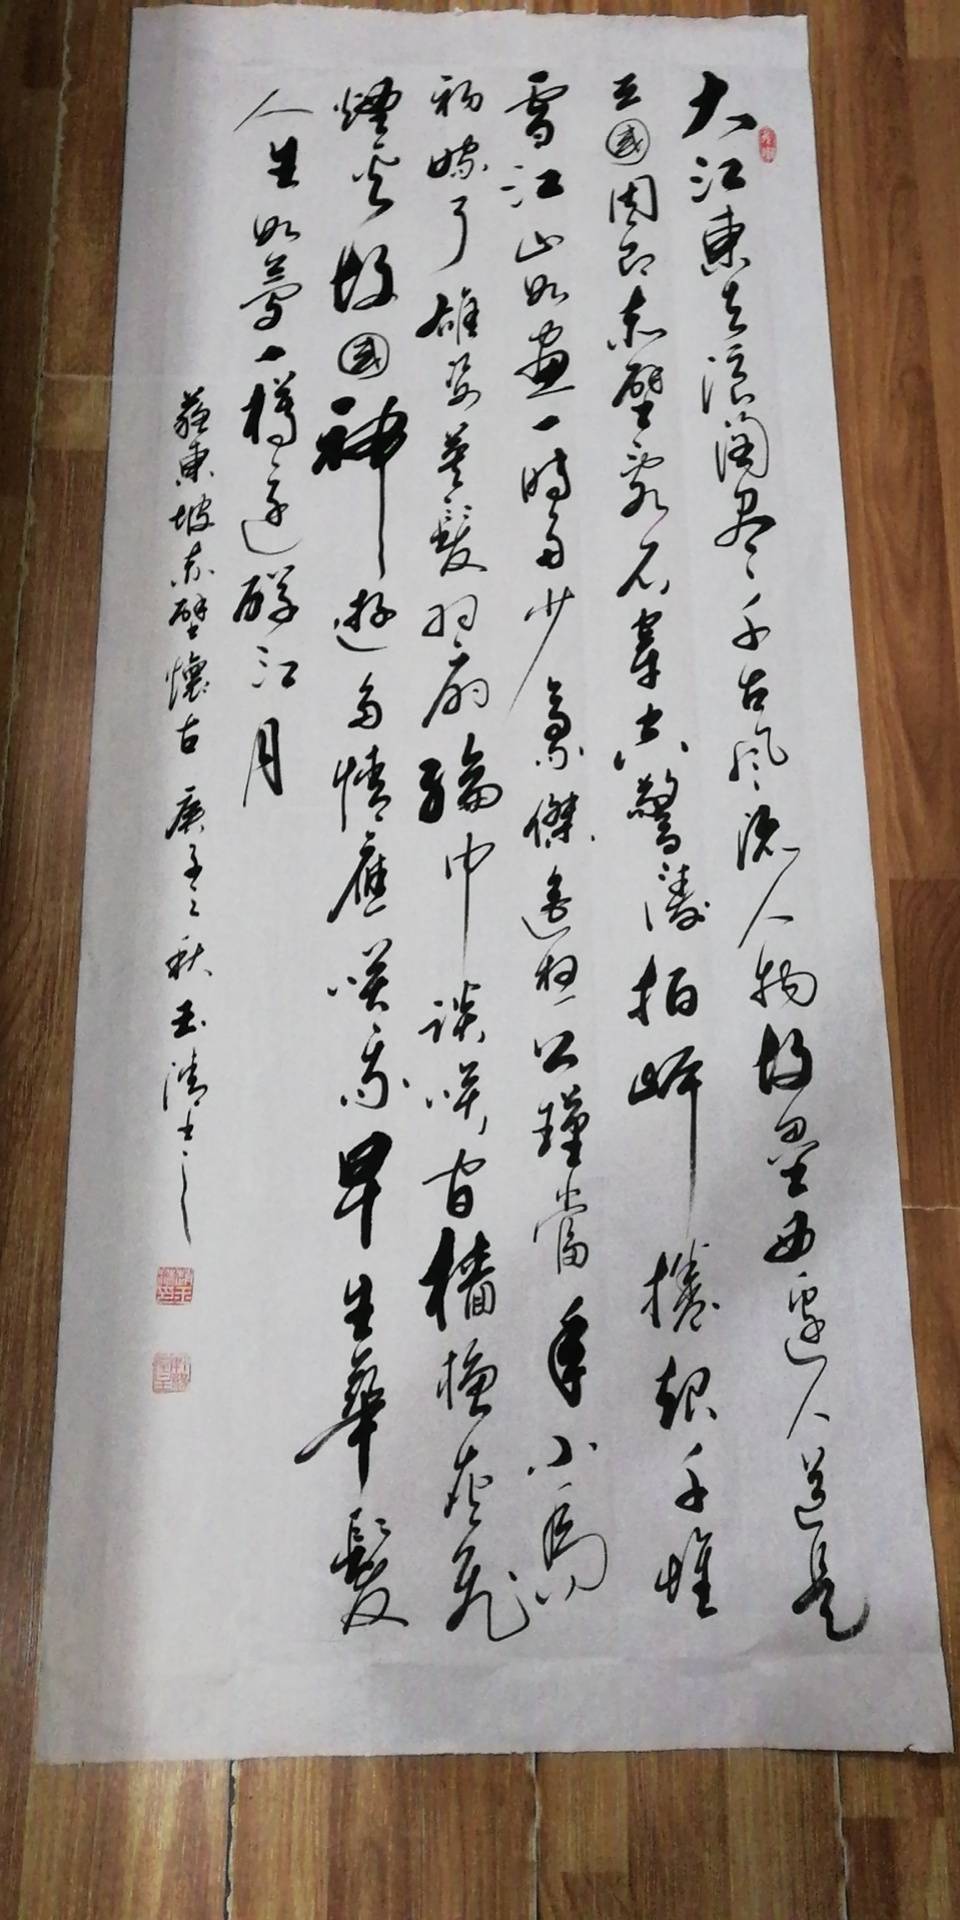 大江東去浪淘尽千古風流人物故壘西邊人道是
三國周郎赤壁亂石穿空驚濤拍岸捲起千堆
雪江山如畫一時多少豪傑遙想公瑾當年小喬
初嫁了雄姿英發羽扇綸巾談笑間檣櫓灰飛
煙滅故國神遊多情應笑我早生華髮
人生如夢一樽還酹江月
蘇東坡赤壁懷古 庚子之秋玉清書